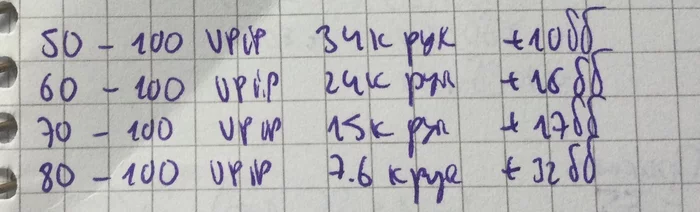 50 - 100 VPIP 34к рук +10бб
60 - 100 VPIP 24к рук +16бб
70 - 100 VPIP 15к рук +17бб
80 - 100 VPIP 7.6 к рук +32бб